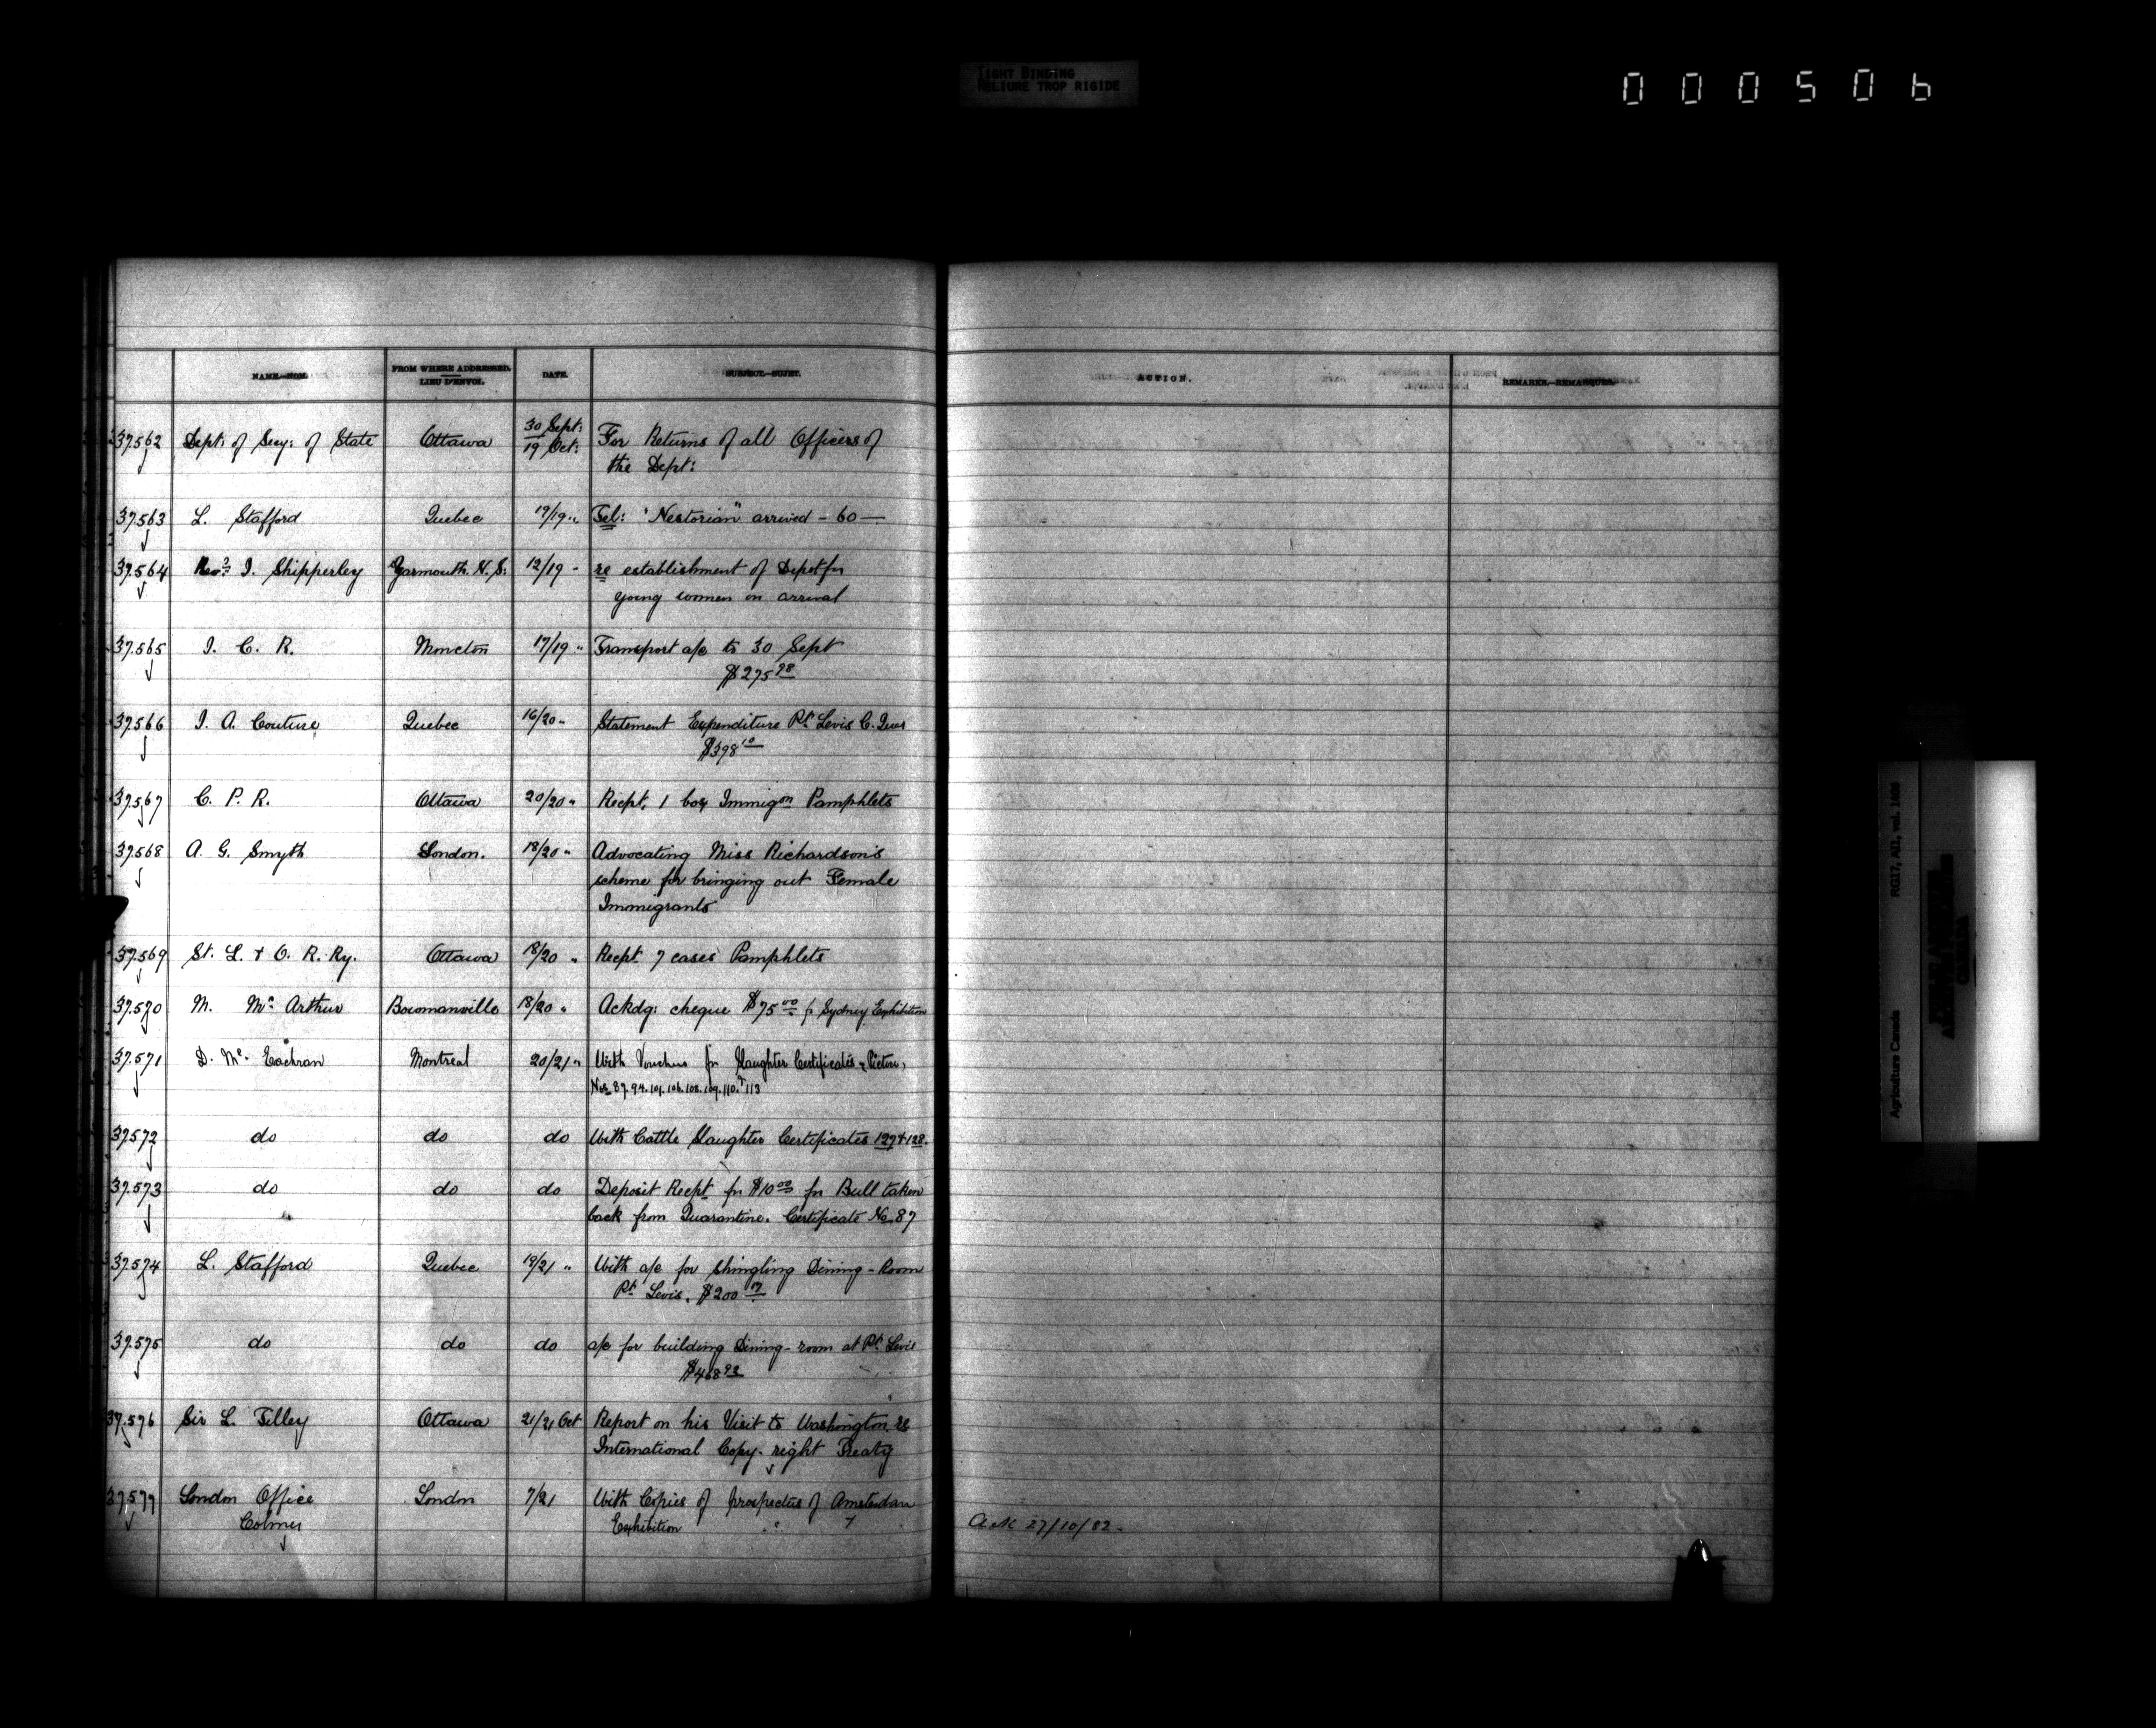 TIGHT BINDING
RELIURE TROP RIGIDE
000506
NAME.—NOM. FROM WHERE ADDRESSED. LIEU D'ENVOI. DATE. SUBJECT.—SUJET. ACTION. REMARKS.—REMARQUES.
37.562 Dept: of Secy: of State Ottawa 30 Sept: 19 Oct: For Returns of all Officers of
the Dept:
37.563 L. Stafford Quebec 19/19 " Tel: "Nestorian" arrived - 60 —
37.564 Revd. J. Shipperley Yarmouth N.S. 12/19 " re establishment of Depot for
young women on arrival
37.565 I. C. R. Moncton 17/19 " Transport a/c to 30 Sept
$275 98
37.566 J. A. Couture Quebec 16/20 " Statement Expenditure Pt. Levis C. Quar
$398 10
37.567 C. P. R. Ottawa 20/20 " Recpt. 1 box Immigon Pamphlets
37.568 A. G. Smyth London. 18/20 " Advocating Miss Richardson's
scheme for bringing out Female
Immigrants
37.569 St. L. & O. R. Ry. Ottawa 18/20 " Recpt 7 cases Pamphlets
37.570 M. Mc Arthur Bowmanville 18/20 " Ackdg: cheque $75 00 f. Sydney Exhibition
37.571 D. Mc. Eachran Montreal 20/21 " With Vouchers for Slaughter Certificates
Nos. 87. 94. 101. 106. 108. 109. 110. & 113
37.572 do do do With Cattle Slaughter Certificates 127 & 128.
37.573 do do do Deposit Recpt for $10 00 for Bull taken
back from Quarantine. Certificate No. 87
37.574 L. Stafford Quebec 19/21 " With a/c for Shingling Dining-Room
Pt. Levis. $200
37.575 do do do a/c for building Dining-room at Pt. Levis
$468 93
37.576 Sir L. Tilley Ottawa 21/21 Oct Report on his Visit to Washington. re
International Copy-right Treaty
37.577 London Office London 7/21 With Copies of prospectus of Amsterdam
Colmer Exhibition
Ack 27/10/82.
Agriculture Canada RG17, AII, vol. 1408